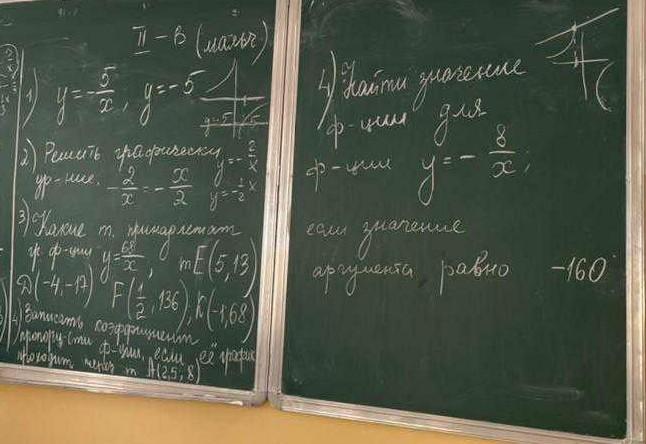 II - в (мальч)
1) y = -5/x, y = -5
y = -5
2) Решить графически
ур-ние. -2/x = -x/2
y = -2/x
y = -1/2 x
3) Какие т. принадлежат
гр. ф-ции y = 68/x, т E(5,13)
D(-4,-17) F(1/2, 136), K(-1,68)
4) Записать коэффициент
пропорц-сти ф-ции, если её график
проходит через т A(2,5; 8)
4) Найти значение
ф-ции для
ф-ции y = - 8/x;
если значение
аргумента равно -160